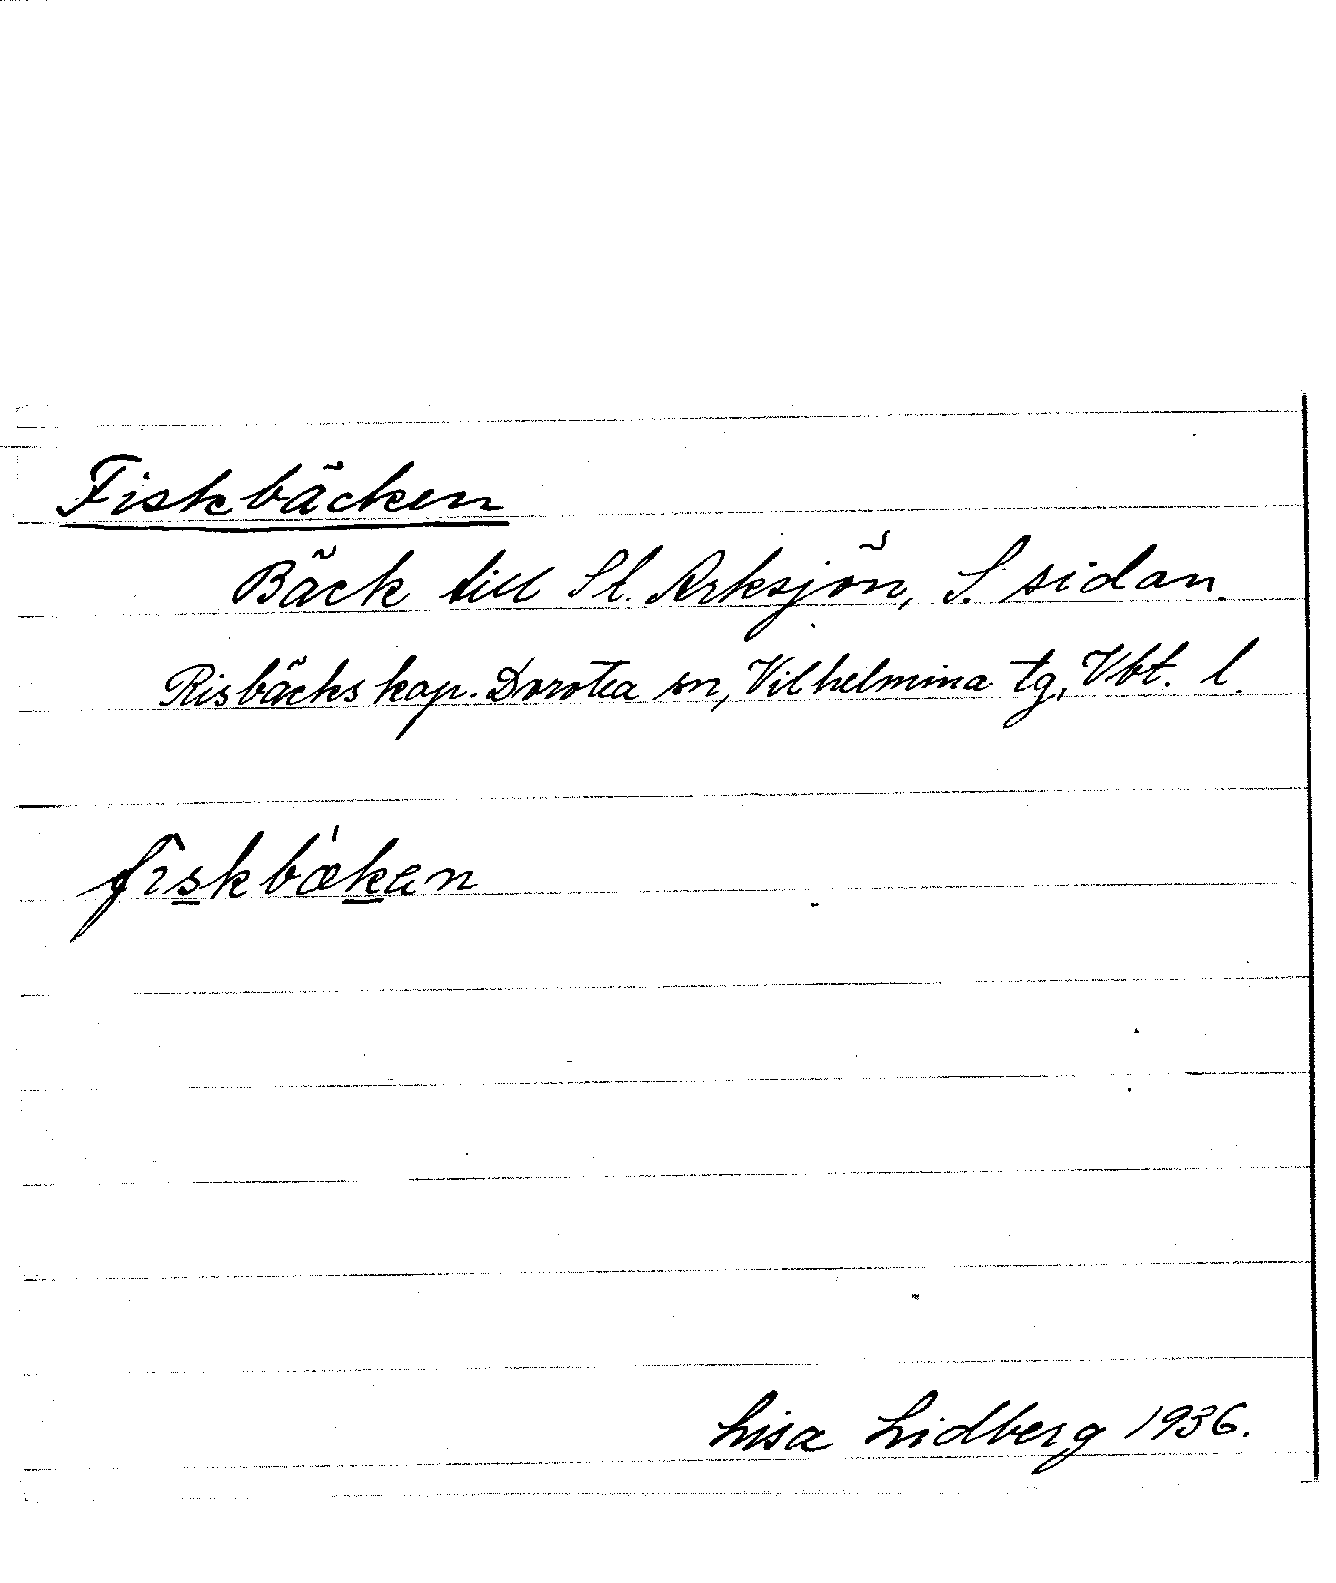 Fiskbäcken
Bäck till St. Arksjön, S. sidan.
Risbäcks kap. Dorotea sn, Vilhelmina tg, Vbt. l.
fiskbæ̀kan
Lisa Lidberg 1936.